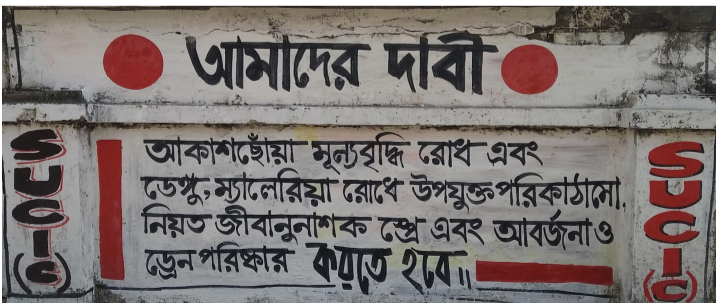 আমাদের দাবী
SUCI(C)
আকাশছোঁয়া মূল্যবৃদ্ধি রোধ এবং
ডেঙ্গু, ম্যালেরিয়া রোধে উপযুক্ত পরিকাঠামো,
নিয়ত জীবানুনাশক স্প্রে এবং আবর্জনা ও
ড্রেন পরিষ্কার করতে হবে॥
SUCI(C)